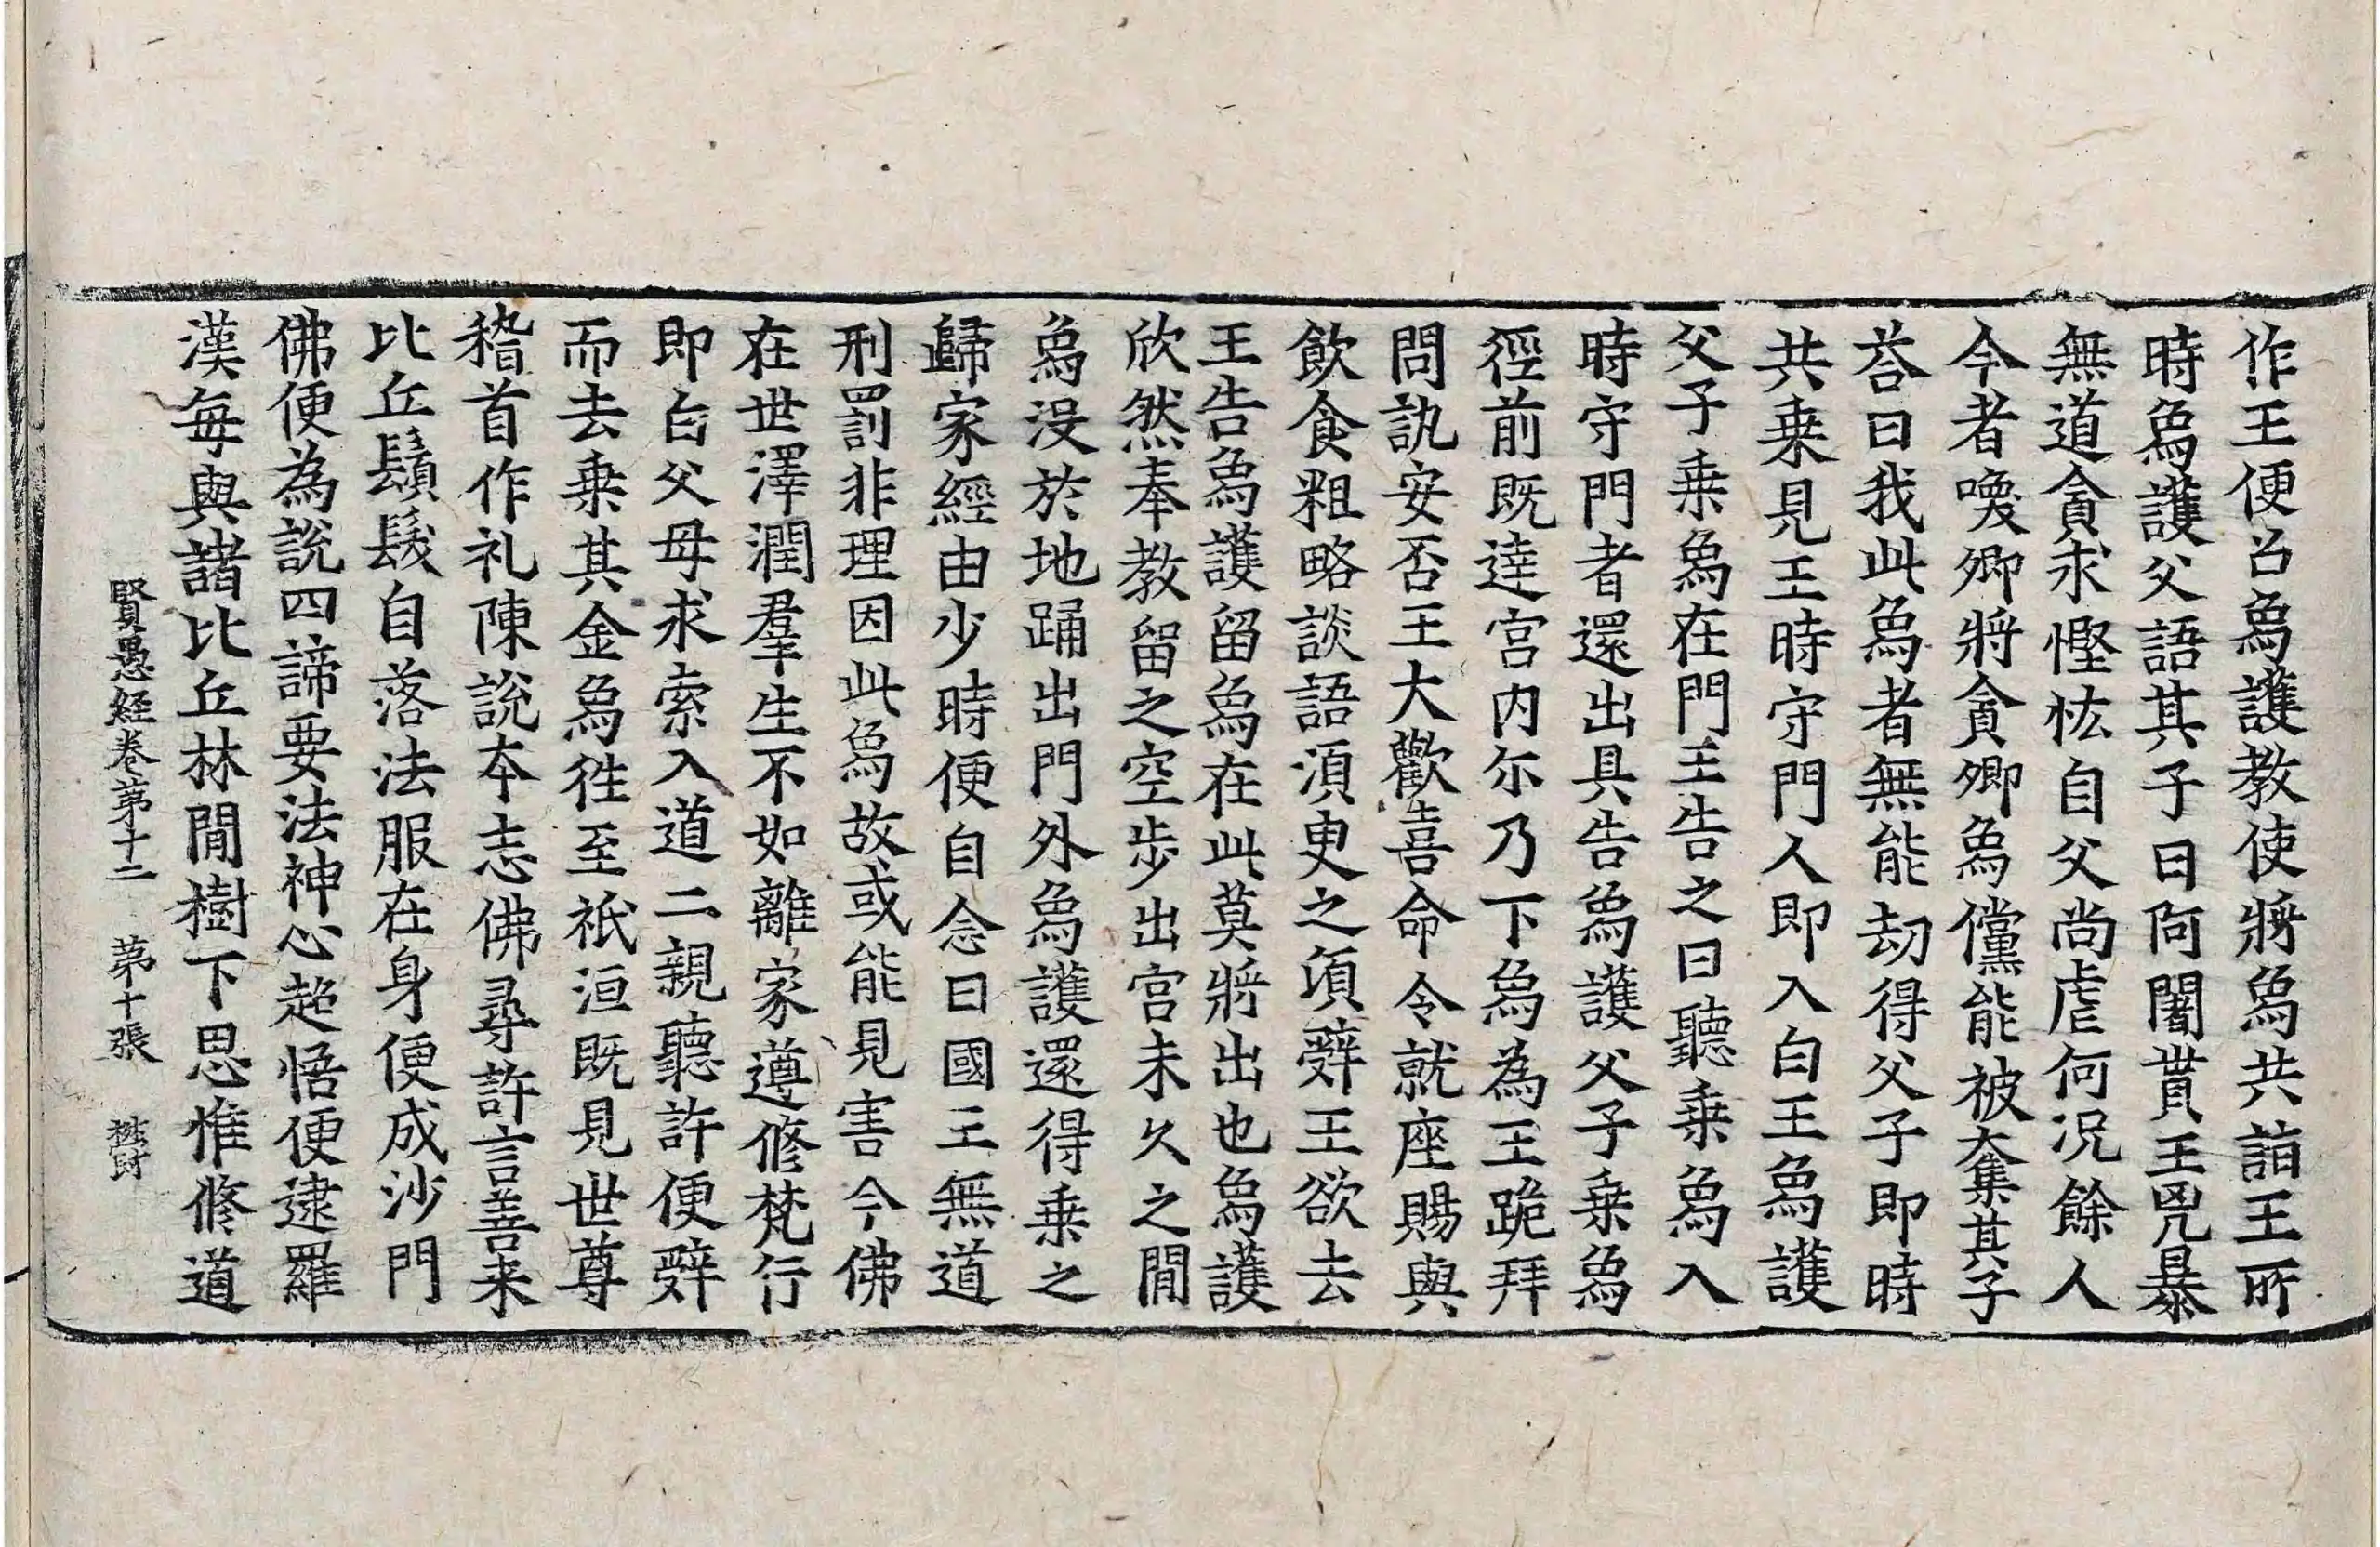 作王便召象護教使將象共詣王所
時象護父語其子曰阿闍貰王㓙暴
無道貪求慳恡自父尚虐何況餘人
今者喚卿將貪卿象儻能被奪其子
荅曰我此象者無能劫得父子即時
共乗見王時守門人即入白王象護
父子乗象在門王告之曰聽乗象入
時守門者還出具告象護父子乗象
徑前既達宮內尓乃下象為王跪拜
問訊安否王大歡喜命令就座賜與
飲食粗略談語須臾之須辭王欲去
王告象護留象在此莫將出也象護
欣然奉教留之空步出宮未久之間
象没於地踊出門外象護還得乗之
歸家經由少時便自念曰國王無道
刑罰非理因此象故或能見害今佛
在世澤潤羣生不如離家遵修梵行
即白父母求索入道二親聽許便辭
而去乗其金象徃至祇洹既見世尊
稽首作礼陳說本志佛尋許言善来
比丘鬚髮自落法服在身便成沙門
佛便為說四諦要法神心超悟便逮羅
漢每與諸比丘林間樹下思惟修道
賢愚経卷第十二 第十張